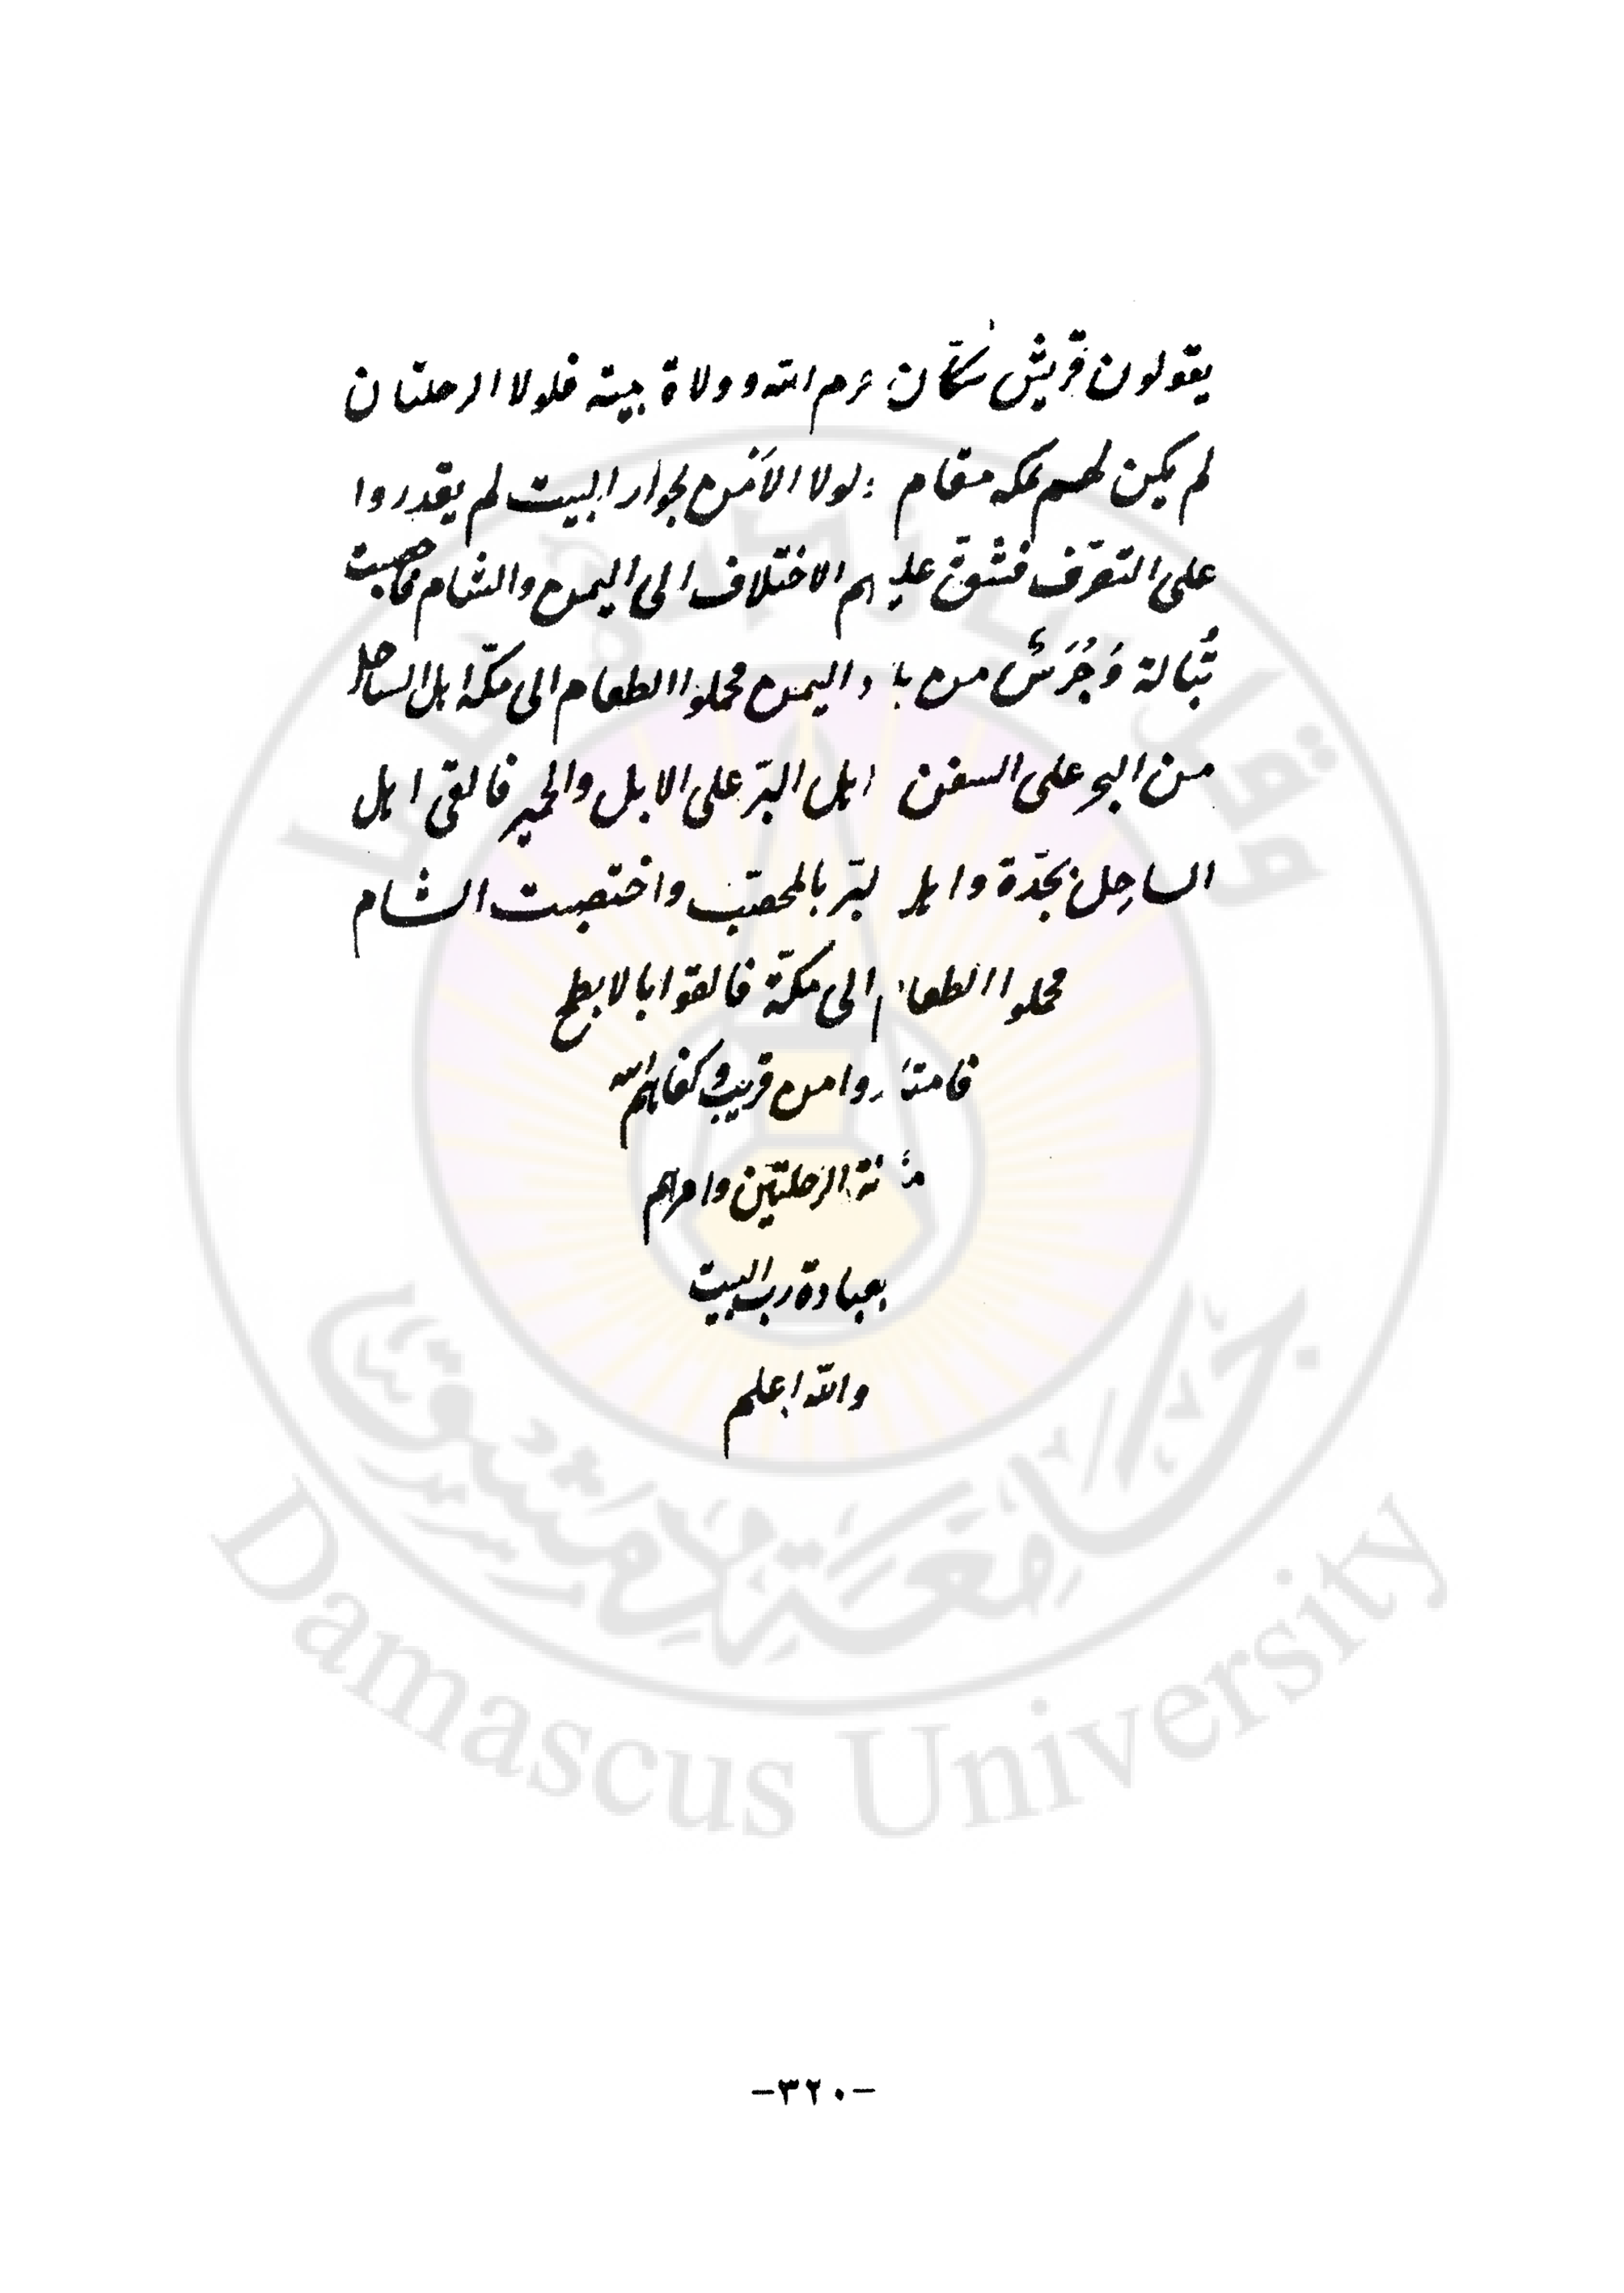 يقولون قريش سكّان حرم الله وولاة بيته فلولا الرحلتان
لم يكن لهم بمكه مقام ولولا الأمن بجوار البيت لم يقدروا
على التصرّف فشقّ عليهم الاختلاف الى اليمن والشام فاخصبت
تُبالة وَجُرَش من بلاد اليمن فحملوا الطعام الى مكّة اهل الساحل
من البحر على السفن اهل البرّ على الابل والحمير فالقى اهل
الساحِل بجدّة واهل لبرّ بالمحصّب واخصبت الشام
فحملوا الطعام الى مكّة فالقوا بالابطح
فامتاروا من قريب وكفاهم الله
مؤنة الرحلتين وامرهم
بعبادة رب البيت
والله اعلم
جامعة دمشق
Damascus University
-٣٢٠-